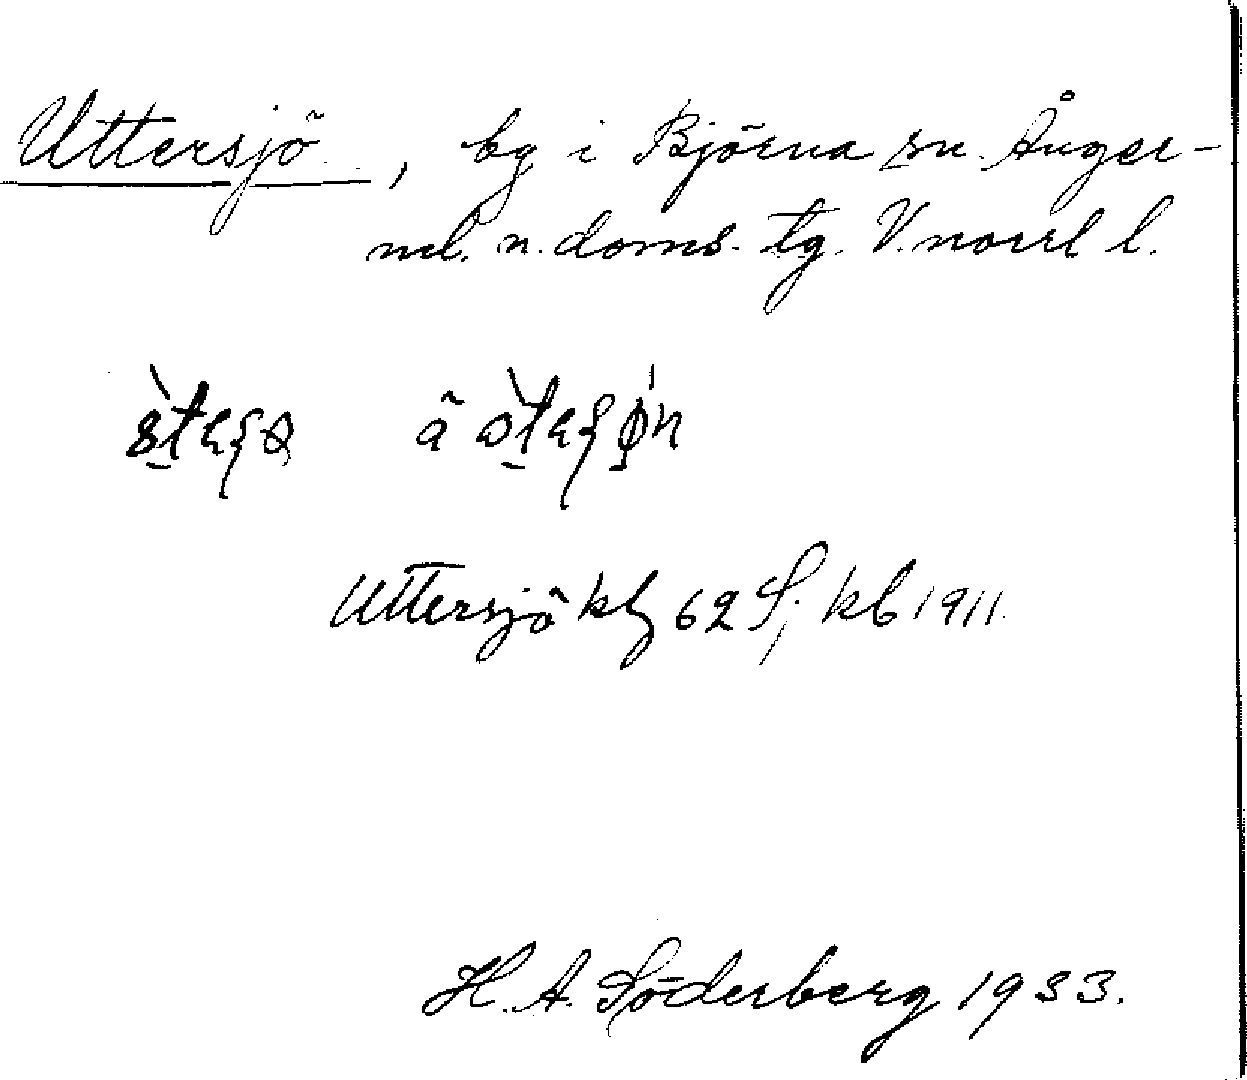 Uttersjö, by i Björna sn. Ånger-
ml. n. doms. tg. V.norrl l.
Uttersjö kbg 62 S; kb 1911.
H. A. Söderberg 1933.